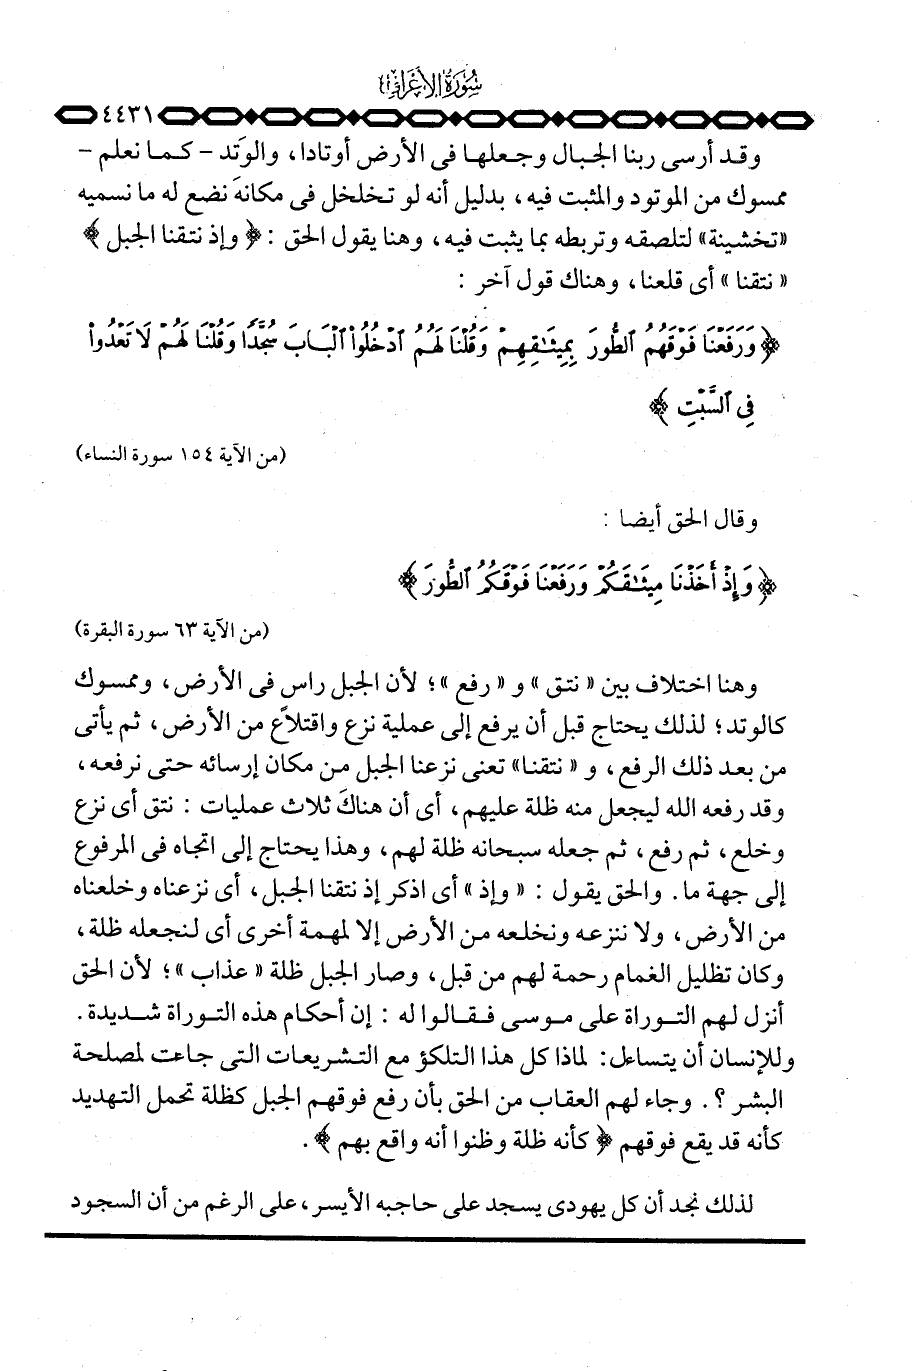 سورة الأعراف
٤٤٣١
وقد أرسى ربنا الجبال وجعلها فى الأرض أوتادا، والوَتد - كما نعلم -
ممسوك من الموتود والمثبت فيه، بدليل أنه لو تخلخل فى مكانهَ نضع له ما نسميه
«تخشينة» لتلصقه وتربطه بما يثبت فيه، وهنا يقول الحق : ﴿ وإذ نتقنا الجبل ﴾
« نتقنا » أى قلعنا، وهناك قول آخر :
﴿ وَرَفَعْنَا فَوْقَهُمُ ٱلطُّورَ بِمِيثَٰقِهِمْ وَقُلْنَا لَهُمُ ٱدْخُلُواْ ٱلْبَابَ سُجَّدًا وَقُلْنَا لَهُمْ لَا تَعْدُواْ
فِى ٱلسَّبْتِ ﴾
(من الآية ١٥٤ سورة النساء)
وقال الحق أيضا :
﴿ وَإِذْ أَخَذْنَا مِيثَٰقَكُمْ وَرَفَعْنَا فَوْقَكُمُ ٱلطُّورَ ﴾
(من الآية ٦٣ سورة البقرة)
وهنا اختلاف بين « نتق » و « رفع »؛ لأن الجبل راس فى الأرض، وممسوك
كالوتد؛ لذلك يحتاج قبل أن يرفع إلى عملية نزع واقتلاع من الأرض، ثم يأتى
من بعد ذلك الرفع، و « نتقنا» تعنى نزعنا الجبل من مكان إرسائه حتى نرفعه،
وقد رفعه الله ليجعل منه ظلة عليهم، أى أن هناك ثلاث عمليات : نتق أى نزع
وخلع، ثم رفع، ثم جعله سبحانه ظلة لهم، وهذا يحتاج إلى اتجاه فى المرفوع
إلى جهة ما. والحق يقول : « وإذ » أى اذكر إذ نتقنا الجبل، أى نزعناه وخلعناه
من الأرض، ولا ننزعه ونخلعه من الأرض إلا لمهمة أخرى أى لنجعله ظلة،
وكان تظليل الغمام رحمة لهم من قبل، وصار الجبل ظلة « عذاب »؛ لأن الحق
أنزل لهم التوراة على موسى فقالوا له : إن أحكام هذه التوراة شديدة.
وللإنسان أن يتساءل: لماذا كل هذا التلكؤ مع التشريعات التى جاءت لمصلحة
البشر ؟. وجاء لهم العقاب من الحق بأن رفع فوقهم الجبل كظلة تحمل التهديد
كأنه قد يقع فوقهم ﴿ كأنه ظلة وظنوا أنه واقع بهم ﴾ .
لذلك نجد أن كل يهودى يسجد على حاجبه الأيسر، على الرغم من أن السجود